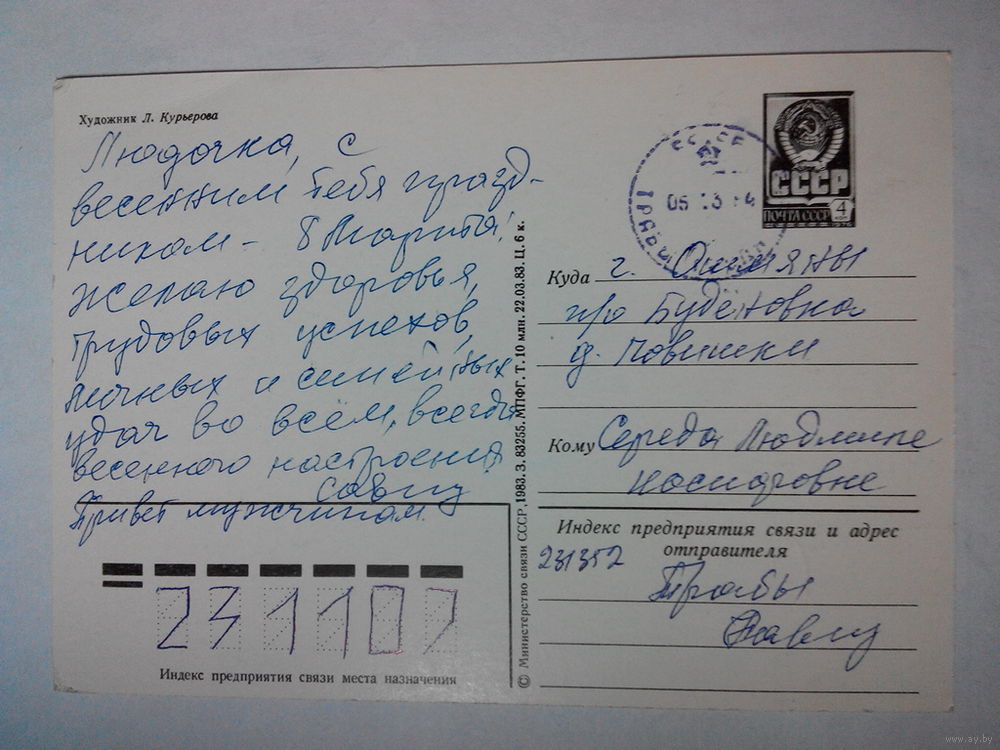 Художник Л. Курьерова
Людочка, с
весенним тебя празд-
ником - 8 Марта!
Желаю здоровья,
трудовых успехов,
личных и семейных
удач во всём, всегда
весеннего настроения
Привет мужчинам.
231107
Индекс предприятия связи места назначения
© Министерство связи СССР, 1983. З. 83255. МПФГ. Т. 10 млн. 22.03.83. Ц. 6 к.
СССР
05 3
СССР
ПОЧТА СССР 4 КОП
1976
Куда г. Ошмяны
п/о Будёновка
д. Новишки
Кому Середа Людмиле
Индекс предприятия связи и адрес
отправителя
231352
Трабы
www.ay.by